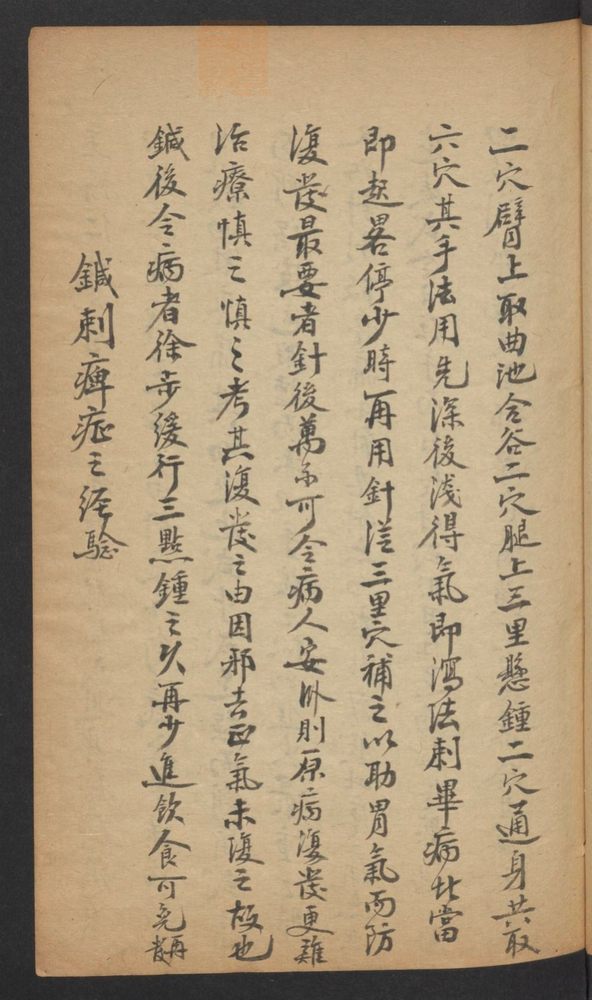 二穴臂上取曲池合谷二穴腿上三里懸鍾二穴通身共取
六穴其手法用先深後淺得氣即瀉法刺畢病狀當
即起畧停少時再用針從三里穴補之以助胃氣而防
復發最要者針後萬不可令病人安臥則原病復發更難
治療慎之慎之考其復發之由因邪去正氣未復之故也
鍼後令病者徐步緩行三點鍾之久再少進飲食可免再發
鍼刺痺症之经驗